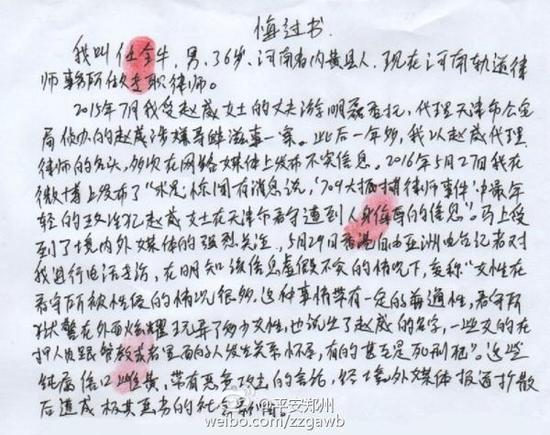 悔过书
我叫任全牛，男、36岁、河南省内黄县人，现在河南轨道律
师事务所做专职律师。
2015年7月我受赵威女士的丈夫游明磊委托，代理天津市公安
局侦办的赵威涉嫌寻衅滋事一案。此后一年多，我以赵威代理
律师的名义，多次在网络媒体上发布不实信息。2016年5月27日我在
微博上发布了“水见，你闻有消息说，‘709大抓捕律师事件’中最年
轻的政治犯赵威女士在天津市看守遭到人身侮辱的信息”。马上受
到了境内外媒体的强烈关注，5月29日香港自由亚洲电台记者对
我进行电话专访，在明知该信息虚假不实的情况下，妄称“女性在
看守所被性侵的情况很多，这种事情带有一定的普遍性，看守所
狱警在外面炫耀玩弄了多少女性，也说出了赵威的名字，一些女的在
押人员跟管教或者里面的人发生关系怀孕，有的甚至是死刑犯”。这些
纯属信口雌黄，带有恶意攻击的言论，经境外媒体报道扩散
后造成极其恶劣的社会影响。
@平安郑州
weibo.com/zzgawb